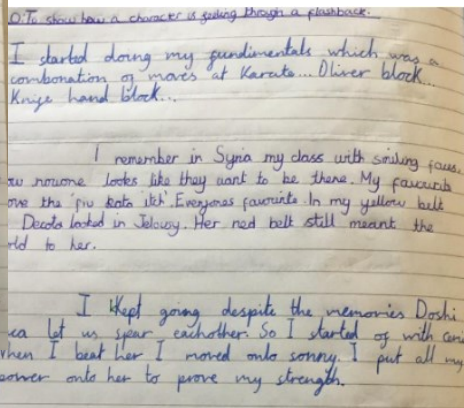 O:To show how a character is feeling through a flashback.
I started doing my fundimentals which was a
combonation of moves at Karate... Oliver block...
Knife hand block...
I remember in Syria my class with smiling faces.
nowone looks like they want to be there. My favourite
the 'piu kata itch'. Everyones favourite. In my yellow belt
Decota looked in Jelousy. Her red belt still meant the
to her.
I Kept going despite the memories Doshi
let us spear eachother. So I started of with
when I beat her I moved onto sonny. I put all my
power onto her to prove my strength.